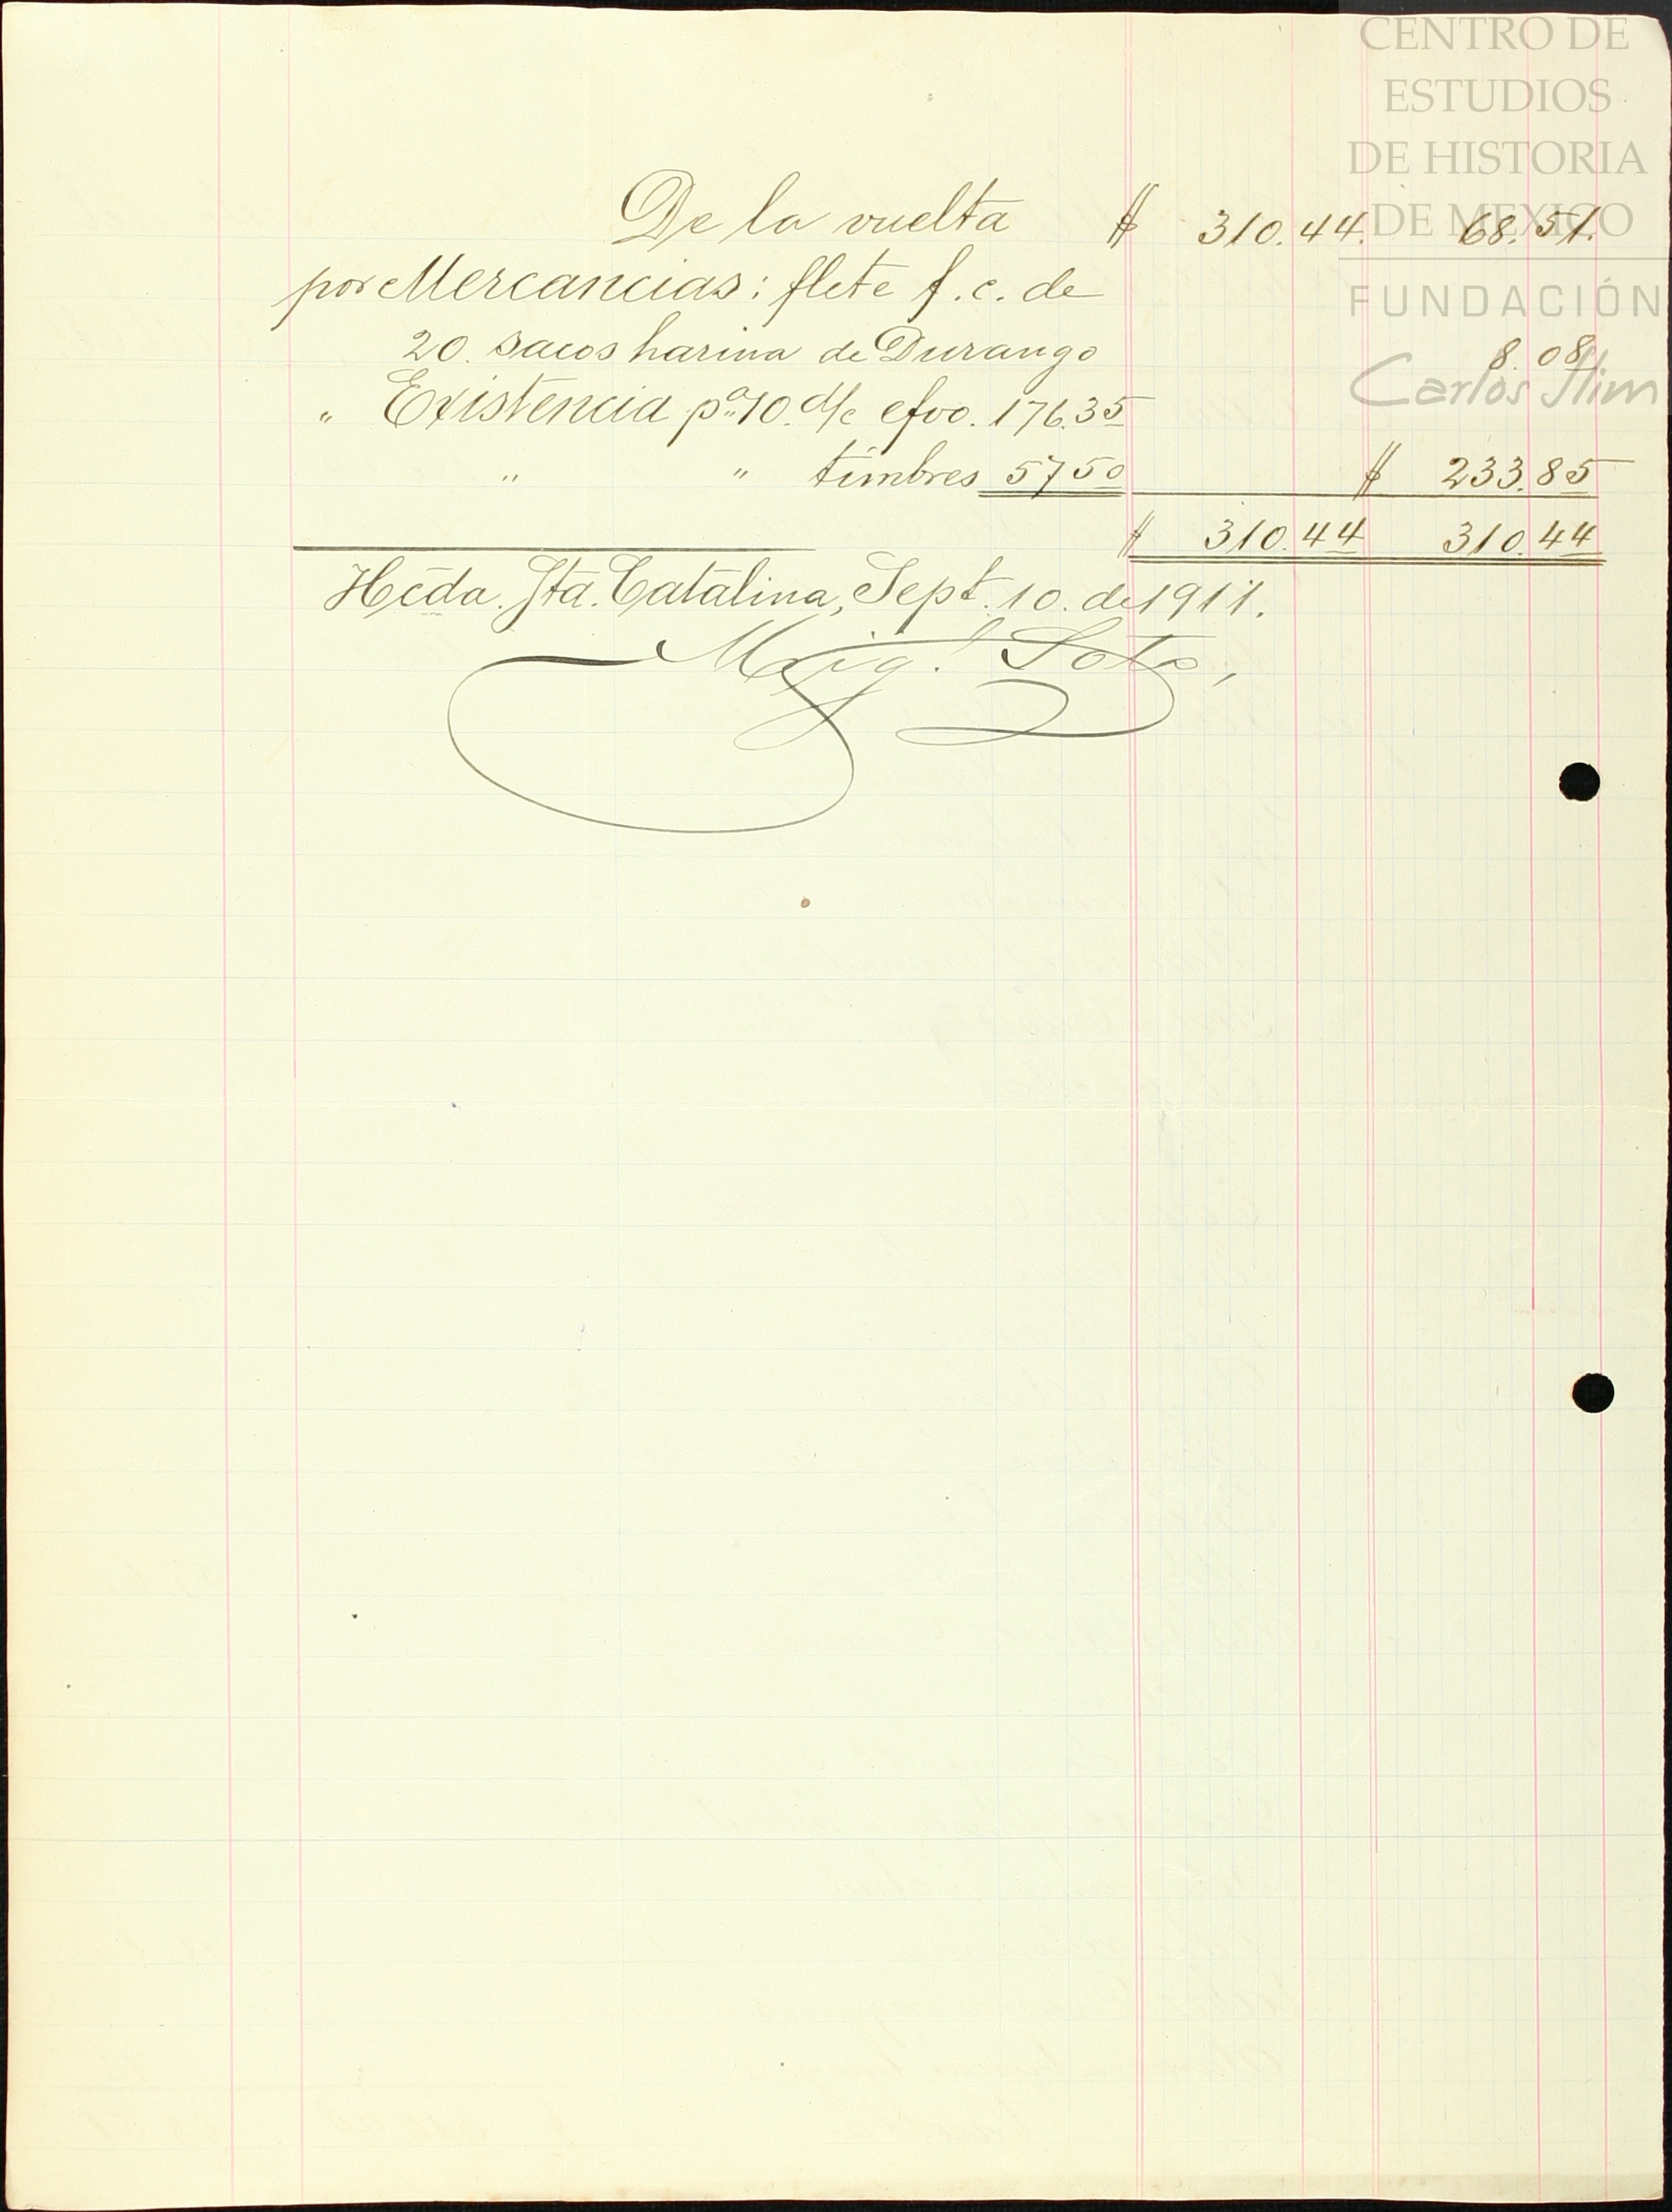 CENTRO DE
ESTUDIOS
DE HISTORIA
DE MEXICO
FUNDACIÓN
Carlos Slim
De la vuelta $ 310.44. 68.51.
por Mercancias: flete f.c. de
20. sacos harina de Durango 8.08
" Existencia pª 10. d/c efvo. 176.35
" " timbres 57 50 $ 233.85
$ 310.44 310.44
Hcda. Sta. Catalina, Sept. 10. de 1911.
Mig. Soto,